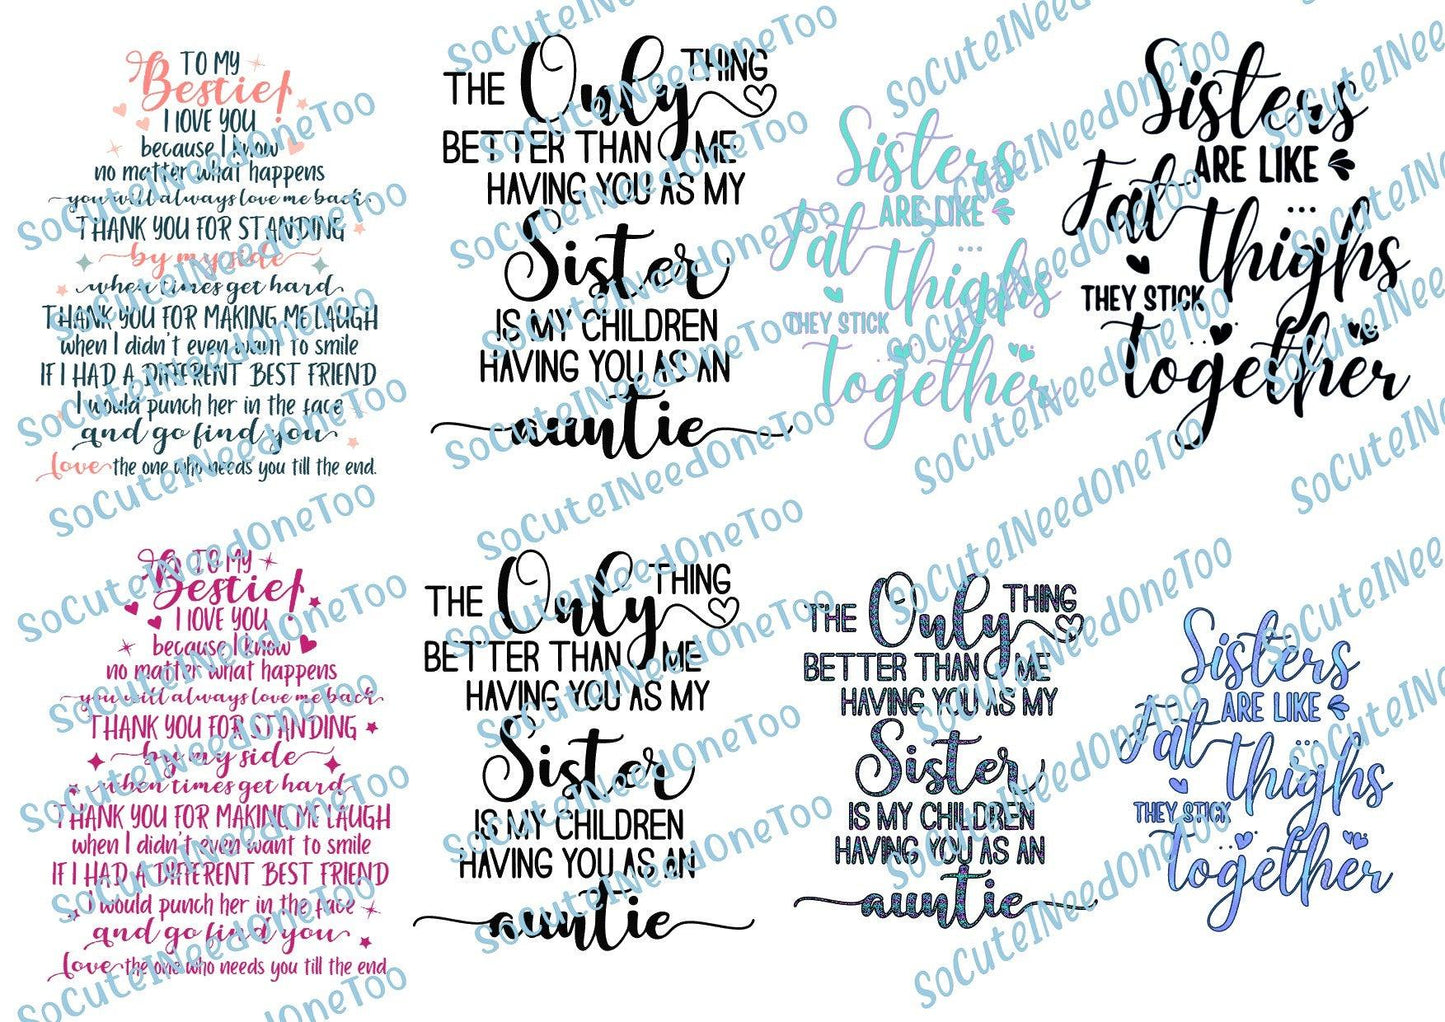 TO MY
Bestie!
I LOVE YOU
because I know
no matter what happens
you will always love me back.
THANK YOU FOR STANDING
by my side
when times get hard
THANK YOU FOR MAKING ME LAUGH
when I didn't even want to smile
IF I HAD A DIFFERENT BEST FRIEND
I would punch her in the face
and go find you
love the one who needs you till the end.
THE Only THING
BETTER THAN ME
HAVING YOU AS MY
Sister
IS MY CHILDREN
HAVING YOU AS AN
auntie
Sisters
ARE LIKE
Fat ... thighs
THEY STICK
together
Sisters
ARE LIKE
Fat ... thighs
THEY STICK
together
TO MY
Bestie!
I LOVE YOU
because I know
no matter what happens
you will always love me back
THANK YOU FOR STANDING
by my side
when times get hard
THANK YOU FOR MAKING ME LAUGH
when I didn't even want to smile
IF I HAD A DIFFERENT BEST FRIEND
I would punch her in the face
and go find you
love the one who needs you till the end.
THE Only THING
BETTER THAN ME
HAVING YOU AS MY
Sister
IS MY CHILDREN
HAVING YOU AS AN
auntie
THE Only THING
BETTER THAN ME
HAVING YOU AS MY
Sister
IS MY CHILDREN
HAVING YOU AS AN
auntie
Sisters
ARE LIKE
Fat ... thighs
THEY STICK
together
SoCuteINeedOneToo